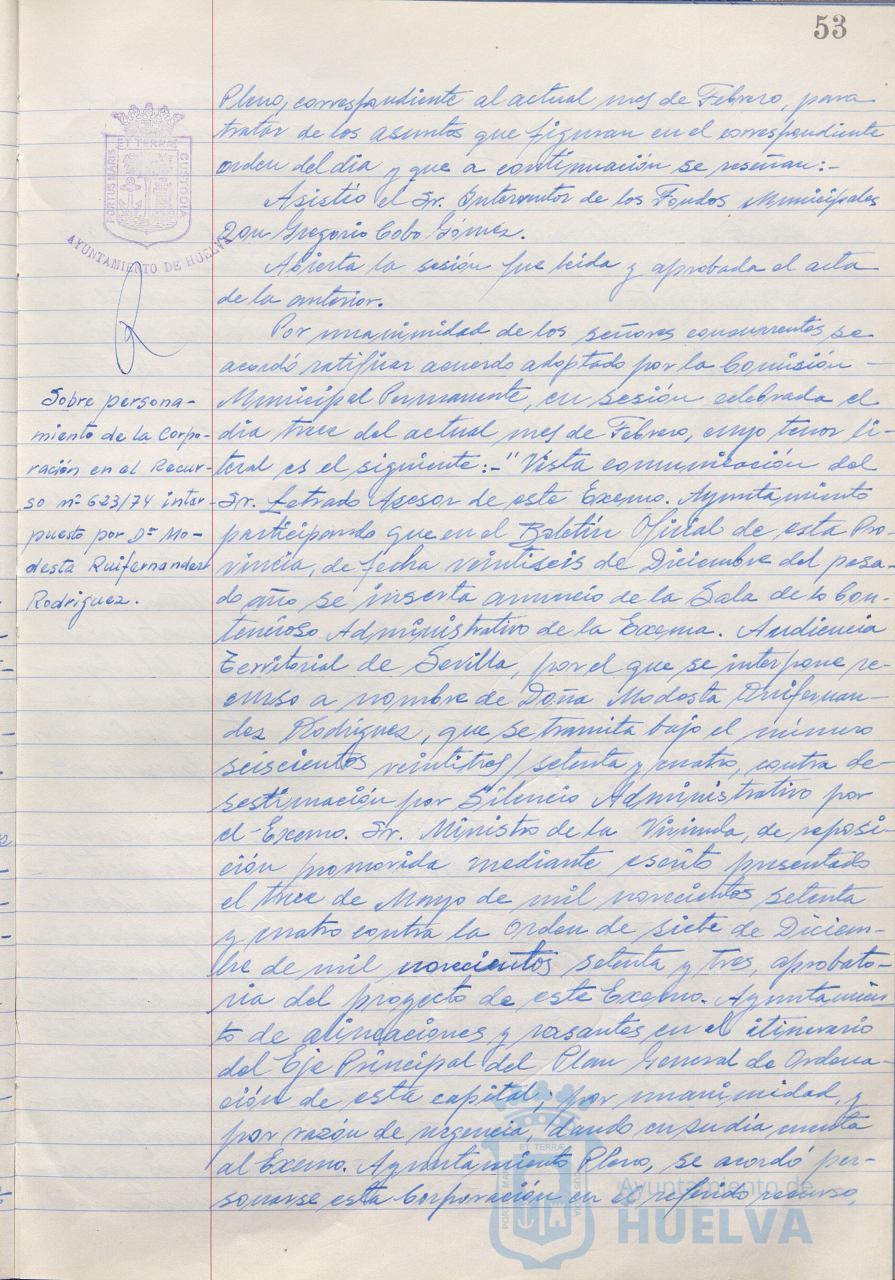 53
Pleno, correspondiente al actual mes de Febrero, para
tratar de los asuntos que figuran en el correspondiente
orden del día y que a continuación se reseñan:-
Asistió el Sr. Interventor de los Fondos Municipales
Don Gregorio Cobo Gómez.
Abierta la sesión fue leida y aprobada el acta
de la anterior.
Por unanimidad de los señores concurrentes, se
acordó ratificar acuerdo adoptado por la Comisión
Municipal Permanente, en sesión celebrada el
día trece del actual mes de Febrero, cuyo tenor li-
teral es el siguiente:-"Vista comunicación del
Sr. Letrado Asesor de este Excmo. Ayuntamiento
participando que en el Boletín Oficial de esta Pro-
vincia, de fecha veintiseis de Diciembre del pasa-
do año se inserta anuncio de la Sala de lo Con-
tencioso Administrativo de la Excma. Audiencia
Territorial de Sevilla, por el que se interpone re-
curso a nombre de Doña Modesta Ruifernan-
dez Rodríguez, que se tramita bajo el número
seiscientos veintitres/setenta y cuatro, contra de-
sestimación por Silencio Administrativo por
el Excmo. Sr. Ministro de la Vivienda, de reposi
ción promovida mediante escrito presentado
el trece de Mayo de mil novecientos setenta
y cuatro contra la Orden de siete de Diciem-
bre de mil novecientos setenta y tres, aprobato-
ria del proyecto de este Excmo. Ayuntamien-
to de alineaciones y rasantes en el itinerario
del Eje Principal del Plan General de Ordena-
ción de esta capital; por unanimidad, y
por razón de urgencia dando en su día cuenta
al Excmo. Ayuntamiento Pleno, se acordó per-
sonarse esta Corporación en el referido recurso,
Sobre persona-
miento de la Corpo-
ración en el Recur-
so nº 623/74 inter-
puesto por Dª Mo-
desta Ruifernandez
Rodriguez.
PORTUS MARIS ET TERRÆ CUSTODIA
AYUNTAMIENTO DE HUELVA
PORTUS MARIS ET TERRÆ CUSTODIA
Ayuntamiento de
HUELVA